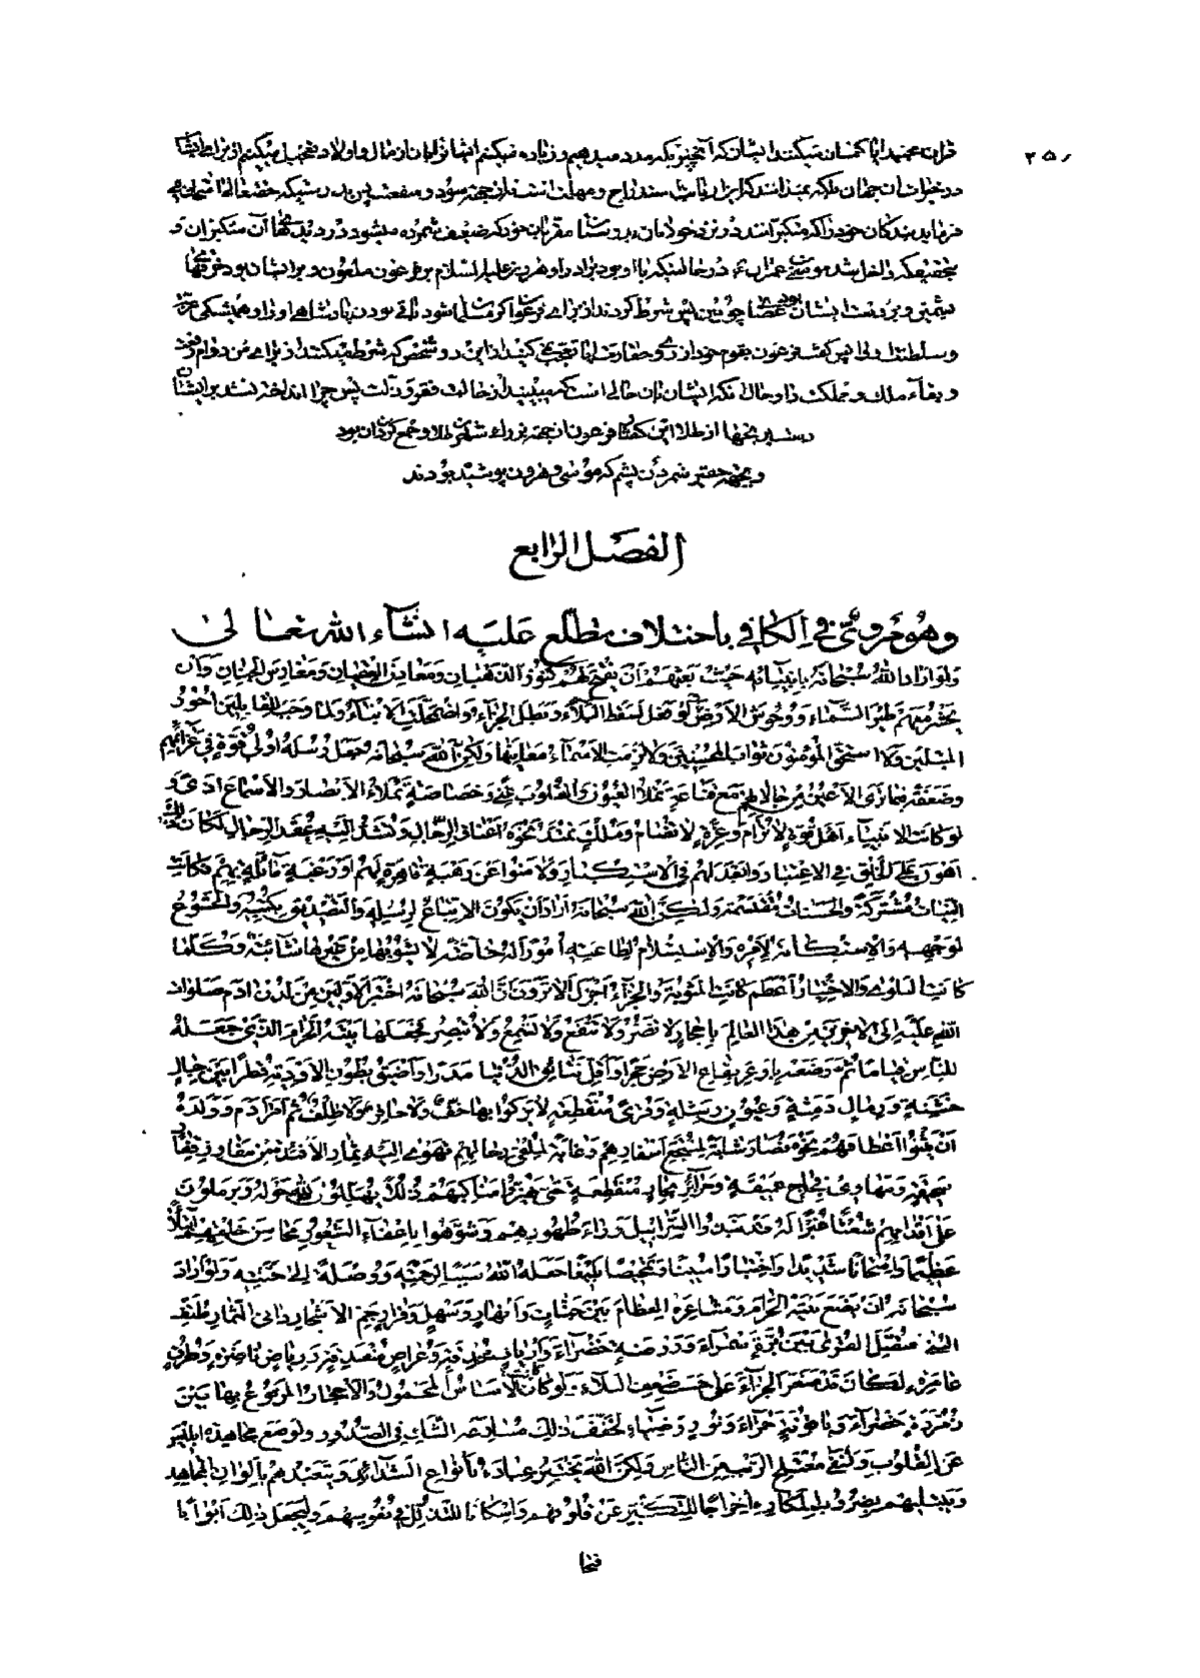 ۳۵۸
قران مجید ایا گمان میکنند ایشان که آنچیزیکه مدد میدهیم و زیاده میکنیم انها را بان از مال و اولاد تعجیل میکنیم از برای ایشان
در خیرات ان چنان بلکه نمیدانند که این از باب استدراج و مهلت است نه از جهة سود و منفعت پس بدرستیکه حقتعالی امتحان می
فرماید بندکان خود را که متکبرانند در نزد خودشان بدوستان مقربان خود که ضعیف شمرده میشود در دیدهای آن متکبران و
بتحقیق که داخل شد موسی بن عمران در حالتیکه با او بود برادر او هرون علیهما السلام بر فرعون ملعون و بر ایشان بود خرقهای
پشمین و بر دست ایشان بود عصا چوبین پس شرط کردند از برای فرعون اکر مسلمان شود باقی بودن پادشاهی او را و همیشکی عزت
وسلطنت او را پس کفت فرعون بقوم خود از روی حقارت ایا تعجب نمی کنید از این دو شخص که شرط میکنند از برای من دوام عزت
و بقاء ملک و مملکت را و حال آنکه ایشان بان حالی است که میبینید از حالت فقر و ذلت پس چرا انداخته نشد بر ایشان
دست برنجها از طلا این کفتن فرعون از جهة بزرک شمردن طلا و جمع کردن ان بود
و بجهة حقیر شمردن پشم که موسی و هرون پوشیده بودند
الفصل الرابع
وهو مروی فی الکافی باختلاف نطلع علیه انشاء الله تعالی
وَلَو اَرادَ اللهُ سُبحانَهُ بِاَنبِیائِهِ حَیثُ بَعَثَهُم اَن یَفتَحَ لَهُم کُنوزَ الذِّهبانِ وَمَعادِنَ العِقیانِ وَمَغارِسَ الجِنانِ وَاَن
یَحشُرَ مَعَهُم طَیرَ السَّماءِ وَوُحوشَ الاَرضِ لَفَعَلَ وَلَو فَعَلَ لَسَقَطَ البَلاءُ وَبَطَلَ الجَزاءُ وَاضمَحَلَّتِ الاَنباءُ وَلَما وَجَبَ لِلقابِلینَ اُجورُ
المُبتَلینَ وَلَا استَحَقَّ المُؤمِنونَ ثَوابَ المُحسِنینَ وَلا لَزِمَتِ الاَسماءُ مَعانِیَها وَلکِنَّ اللهَ سُبحانَهُ جَعَلَ رُسُلَهُ اُولی قُوَّةٍ فی عَزائِمِهِم
وَضَعَفَةً فیما تَرَی الاَعیُنُ مِن حالاتِهِم مَعَ قَناعَةٍ تَملَأُ العُیونَ وَالقُلوبَ غِنیً وَخَصاصَةٍ تَملَأُ الاَبصارَ وَالاَسماعَ اَذیً وَ
لَو کانَتِ الاَنبِیاءُ اَهلَ قُوَّةٍ لا تُرامُ وَعِزَّةٍ لا تُضامُ وَمُلکٍ تَمتَدُّ نَحوَهُ اَعناقُ الرِّجالِ وَتُشَدُّ اِلَیهِ عُقَدُ الرِّحالِ لَکانَ ذلِکَ
اَهوَنَ عَلَی الخَلقِ فِی الاِعتِبارِ وَاَبعَدَ لَهُم فِی الاِستِکبارِ وَلَآمَنوا عَن رَهبَةٍ قاهِرَةٍ لَهُم اَو رَغبَةٍ مائِلَةٍ بِهِم فَکانَتِ
النِّیّاتُ مُشتَرَکَةً وَالحَسَناتُ مُقتَسَمَةً وَلکِنَّ اللهَ سُبحانَهُ اَرادَ اَن یَکونَ الاِتِّباعُ لِرُسُلِهِ وَالتَّصدیقُ بِکُتُبِهِ وَالخُشوعُ
لِوَجهِهِ وَالاِستِکانَةُ لِاَمرِهِ وَالاِستِسلامُ لِطاعَتِهِ اُمورًا لَهُ خاصَّةً لا یَشوبُها مِن غَیرِها شائِبَةٌ وَکُلَّما
کانَتِ البَلوی وَالاِختِبارُ اَعظَمَ کانَتِ المَثوبَةُ وَالجَزاءُ اَجزَلَ اَلا تَرَونَ اَنَّ اللهَ سُبحانَهُ اختَبَرَ الاَوَّلینَ مِن لَدُن ادَمَ صَلَواتُ
اللهِ عَلَیهِ اِلَی الاخِرینَ مِن هذَا العالَمِ بِاَحجارٍ لا تَضُرُّ وَلا تَنفَعُ وَلا تَسمَعُ وَلا تُبصِرُ فَجَعَلَها بَیتَهُ الحَرامَ الَّذی جَعَلَهُ
لِلنّاسِ قِیامًا ثُمَّ وَضَعَهُ بِاَوعَرِ بِقاعِ الاَرضِ حَجَرًا وَاَقَلِّ نَتائِقِ الدُّنیا مَدَرًا وَاَضیَقِ بُطونِ الاَودِیَةِ قُطرًا بَینَ جِبالٍ
خَشِنَةٍ وَرِمالٍ دَمِثَةٍ وَعُیونٍ وَشِلَةٍ وَقُریً مُنقَطِعَةٍ لا یَزکوا بِها خُفٌّ وَلا حافِرٌ وَلا ظِلفٌ ثُمَّ اَمَرَ ادَمَ وَوَلَدَهُ
اَن یَثنوا اَعطافَهُم نَحوَهُ فَصارَ مَثابَةً لِمُنتَجَعِ اَسفارِهِم وَغایَةً لِمُلقی رِحالِهِم تَهوی اِلَیهِ ثِمارُ الاَفئِدَةِ مِن مَفاوِزِ قِفارٍ
سَحیقَةٍ وَمَهاوی فِجاجٍ عَمیقَةٍ وَجَزائِرِ بِحارٍ مُنقَطِعَةٍ حَتّی یَهُزّوا مَناکِبَهُم ذُلُلًا یُهَلِّلونَ لِلّهِ حَولَهُ وَیَرمُلونَ
عَلی اَقدامِهِم شُعثًا غُبرًا لَهُ قَد نَبَذُوا السَّرابیلَ وَراءَ ظُهورِهِم وَشَوَّهوا بِاِعفاءِ الشُّعورِ مَحاسِنَ خَلقِهِم ابتِلاءً
عَظیمًا وَامتِحانًا شَدیدًا وَاختِبارًا مُبینًا وَتَمحیصًا بَلیغًا جَعَلَهُ اللهُ سَبَبًا لِرَحمَتِهِ وَوُصلَةً اِلی جَنَّتِهِ وَلَو اَرادَ
سُبحانَهُ اَن یَضَعَ بَیتَهُ الحَرامَ وَمَشاعِرَهُ العِظامَ بَینَ جَنّاتٍ وَاَنهارٍ وَسَهلٍ وَقَرارٍ جَمِّ الاَشجارِ دانِی الثِّمارِ مُلتَفِّ
البُنی مُتَّصِلِ القُری بَینَ بُرَّةٍ سَمراءَ وَرَوضَةٍ خَضراءَ وَاَریافٍ مُحدِقَةٍ وَعِراصٍ مُغدِقَةٍ وَرِیاضٍ ناضِرَةٍ وَطُرُقٍ
عامِرَةٍ لَکانَ قَد صَغُرَ الجَزاءُ عَلی حَسَبِ ضَعفِ البَلاءِ وَلَو کانَ الاَساسُ المَحمولُ وَالاَحجارُ المَرفوعُ بِها بَینَ
زُمُرُّدَةٍ خَضراءَ وَیاقوتَةٍ حَمراءَ وَنورٍ وَضِیاءٍ لَخَفَّفَ ذلِکَ مُسارَعَةَ الشَّکِّ فِی الصُّدورِ وَلَوَضَعَ مُجاهَدَةَ اِبلیسَ
عَنِ القُلوبِ وَلَنَفی مُعتَلِجَ الرَّیبِ مِنَ النّاسِ وَلکِنَّ اللهَ یَختَبِرُ عِبادَهُ بِاَنواعِ الشَّدائِدِ وَیَتَعَبَّدُهُم بِاَلوانِ المَجاهِدِ
وَیَبتَلیهِم بِضُروبِ المَکارِهِ اِخراجًا لِلتَّکَبُّرِ عَن قُلوبِهِم وَاِسکانًا لِلتَّذَلُّلِ فی نُفوسِهِم وَلِیَجعَلَ ذلِکَ اَبوابًا
فتحا